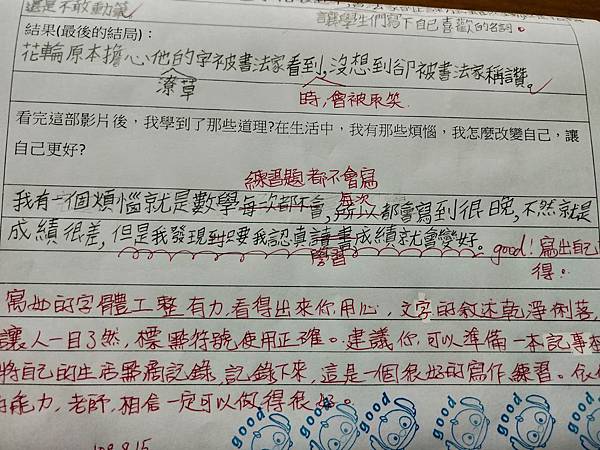 還是不敢動筆
讓學生們寫下自己喜歡的名詞。
結果(最後的結局)：
花輪原本擔心他的字被書法家看到,沒想到卻被書法家稱讚。
潦草
時,會被取笑
看完這部影片後，我學到了那些道理?在生活中，我有那些煩惱，我怎麼改變自己，讓
自己更好?
練習題都不會寫
我有一個煩惱就是數學每次都不會,所以都會寫到很晚,不然就是
每次
成績很差,但是我發現只要我認真讀書成績就會變好。
學習
good!寫出自己
得。
寫的字體工整有力,看得出來你用心,文字的敘述乾淨俐落,
讓人一目了然,標點符號使用正確。建議你可以準備一本記事本
將自己的生活點滴記錄,記錄下來,這是一個很好的寫作練習。依你
的能力,老師相信一定可以做得很好。
good good good good good